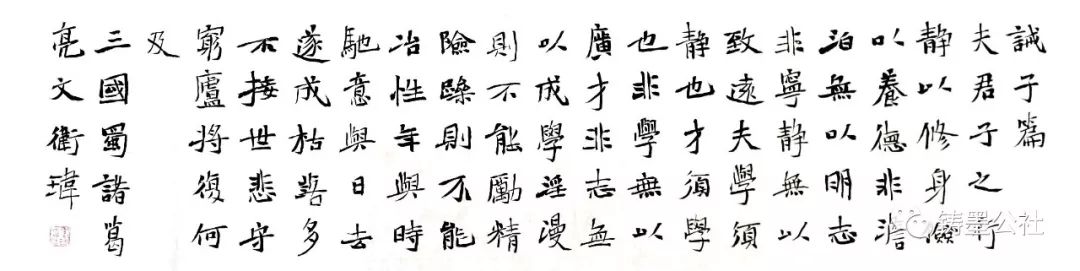 誡子篇
夫君子之行
静以修身儉
以養德非澹
泊無以明志
非寧静無以
致遠夫學須
静也才須學
也非學無以
廣才非志無
以成學淫漫
則不能勵精
險躁則不能
冶性年與時
馳意與日去
遂成枯落多
不接世悲守
窮廬將復何
及
三國蜀諸葛
亮文衛瑋
铸墨公社